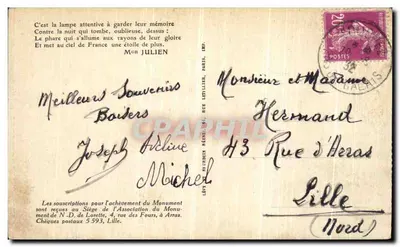 C'est la lampe attentive à garder leur mémoire
Contre la nuit qui tombe, oublieuse, dessus :
Le phare qui s'allume aux rayons de leur gloire
Et met au ciel de France une étoile de plus.
Mgr JULIEN
Meilleurs Souvenirs
Baisers
Joseph Adeline
Michel
Les souscriptions pour l'achèvement du Monument
sont reçues au Siège de l'Association du Monu-
ment de N.-D. de Lorette, 4, rue des Fours, à Arras.
Chèques postaux 5 593, Lille.
20
POSTES
CALAIS
Monsieur et Madame
Hermand
43 Rue d'Arras
Lille
(Nord)